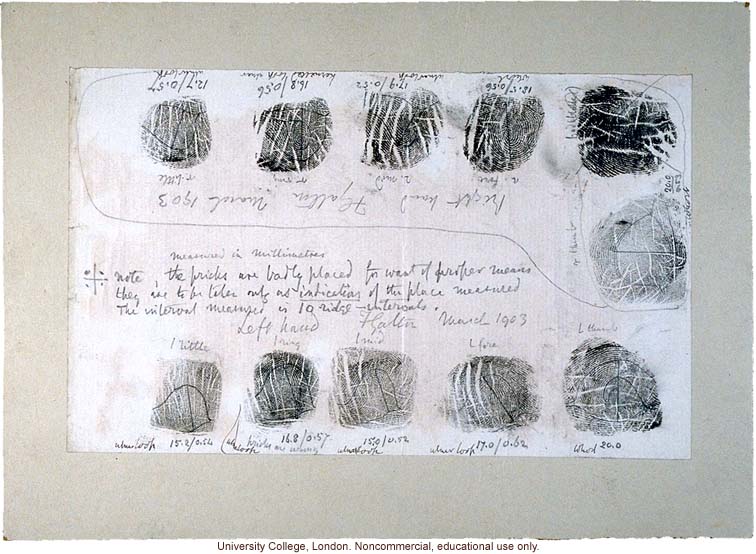 12.7/0.57
16.8/0.56
17.9/0.52
18.5/0.56
ulnar loop
ulnar loop
r. little
r. ring
r. mid.
r. fore
Right hand FGalton March 1903
r. thumb
20.0
measured in millimetres
note, the pricks are badly placed for want of proper means
they are to be taken only as indications of the place measured
The interval measured is 10 ridge-intervals.
Left hand FGalton March 1903
l little
l ring
l mid
L fore
L thumb
ulnar loop 15.2/0.54
16.8/0.57
pricks are wrong
loop
15.0/0.52
ulnar loop
ulnar loop 17.0/0.62
whorl 20.0
University College, London. Noncommercial, educational use only.